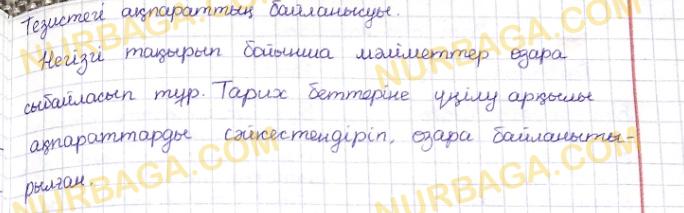 Тезистегі ақпараттың байланысуы.
Негізгі тақырып бойынша мәліметтер өзара
сыбайласып тұр. Тарих беттеріне үңілу арқылы
ақпараттарды сәйкестендіріп, өзара байланысты-
рылған.
NURBAGA.COM
NURBAGA.COM
NURBAGA.COM
NURBAGA.COM